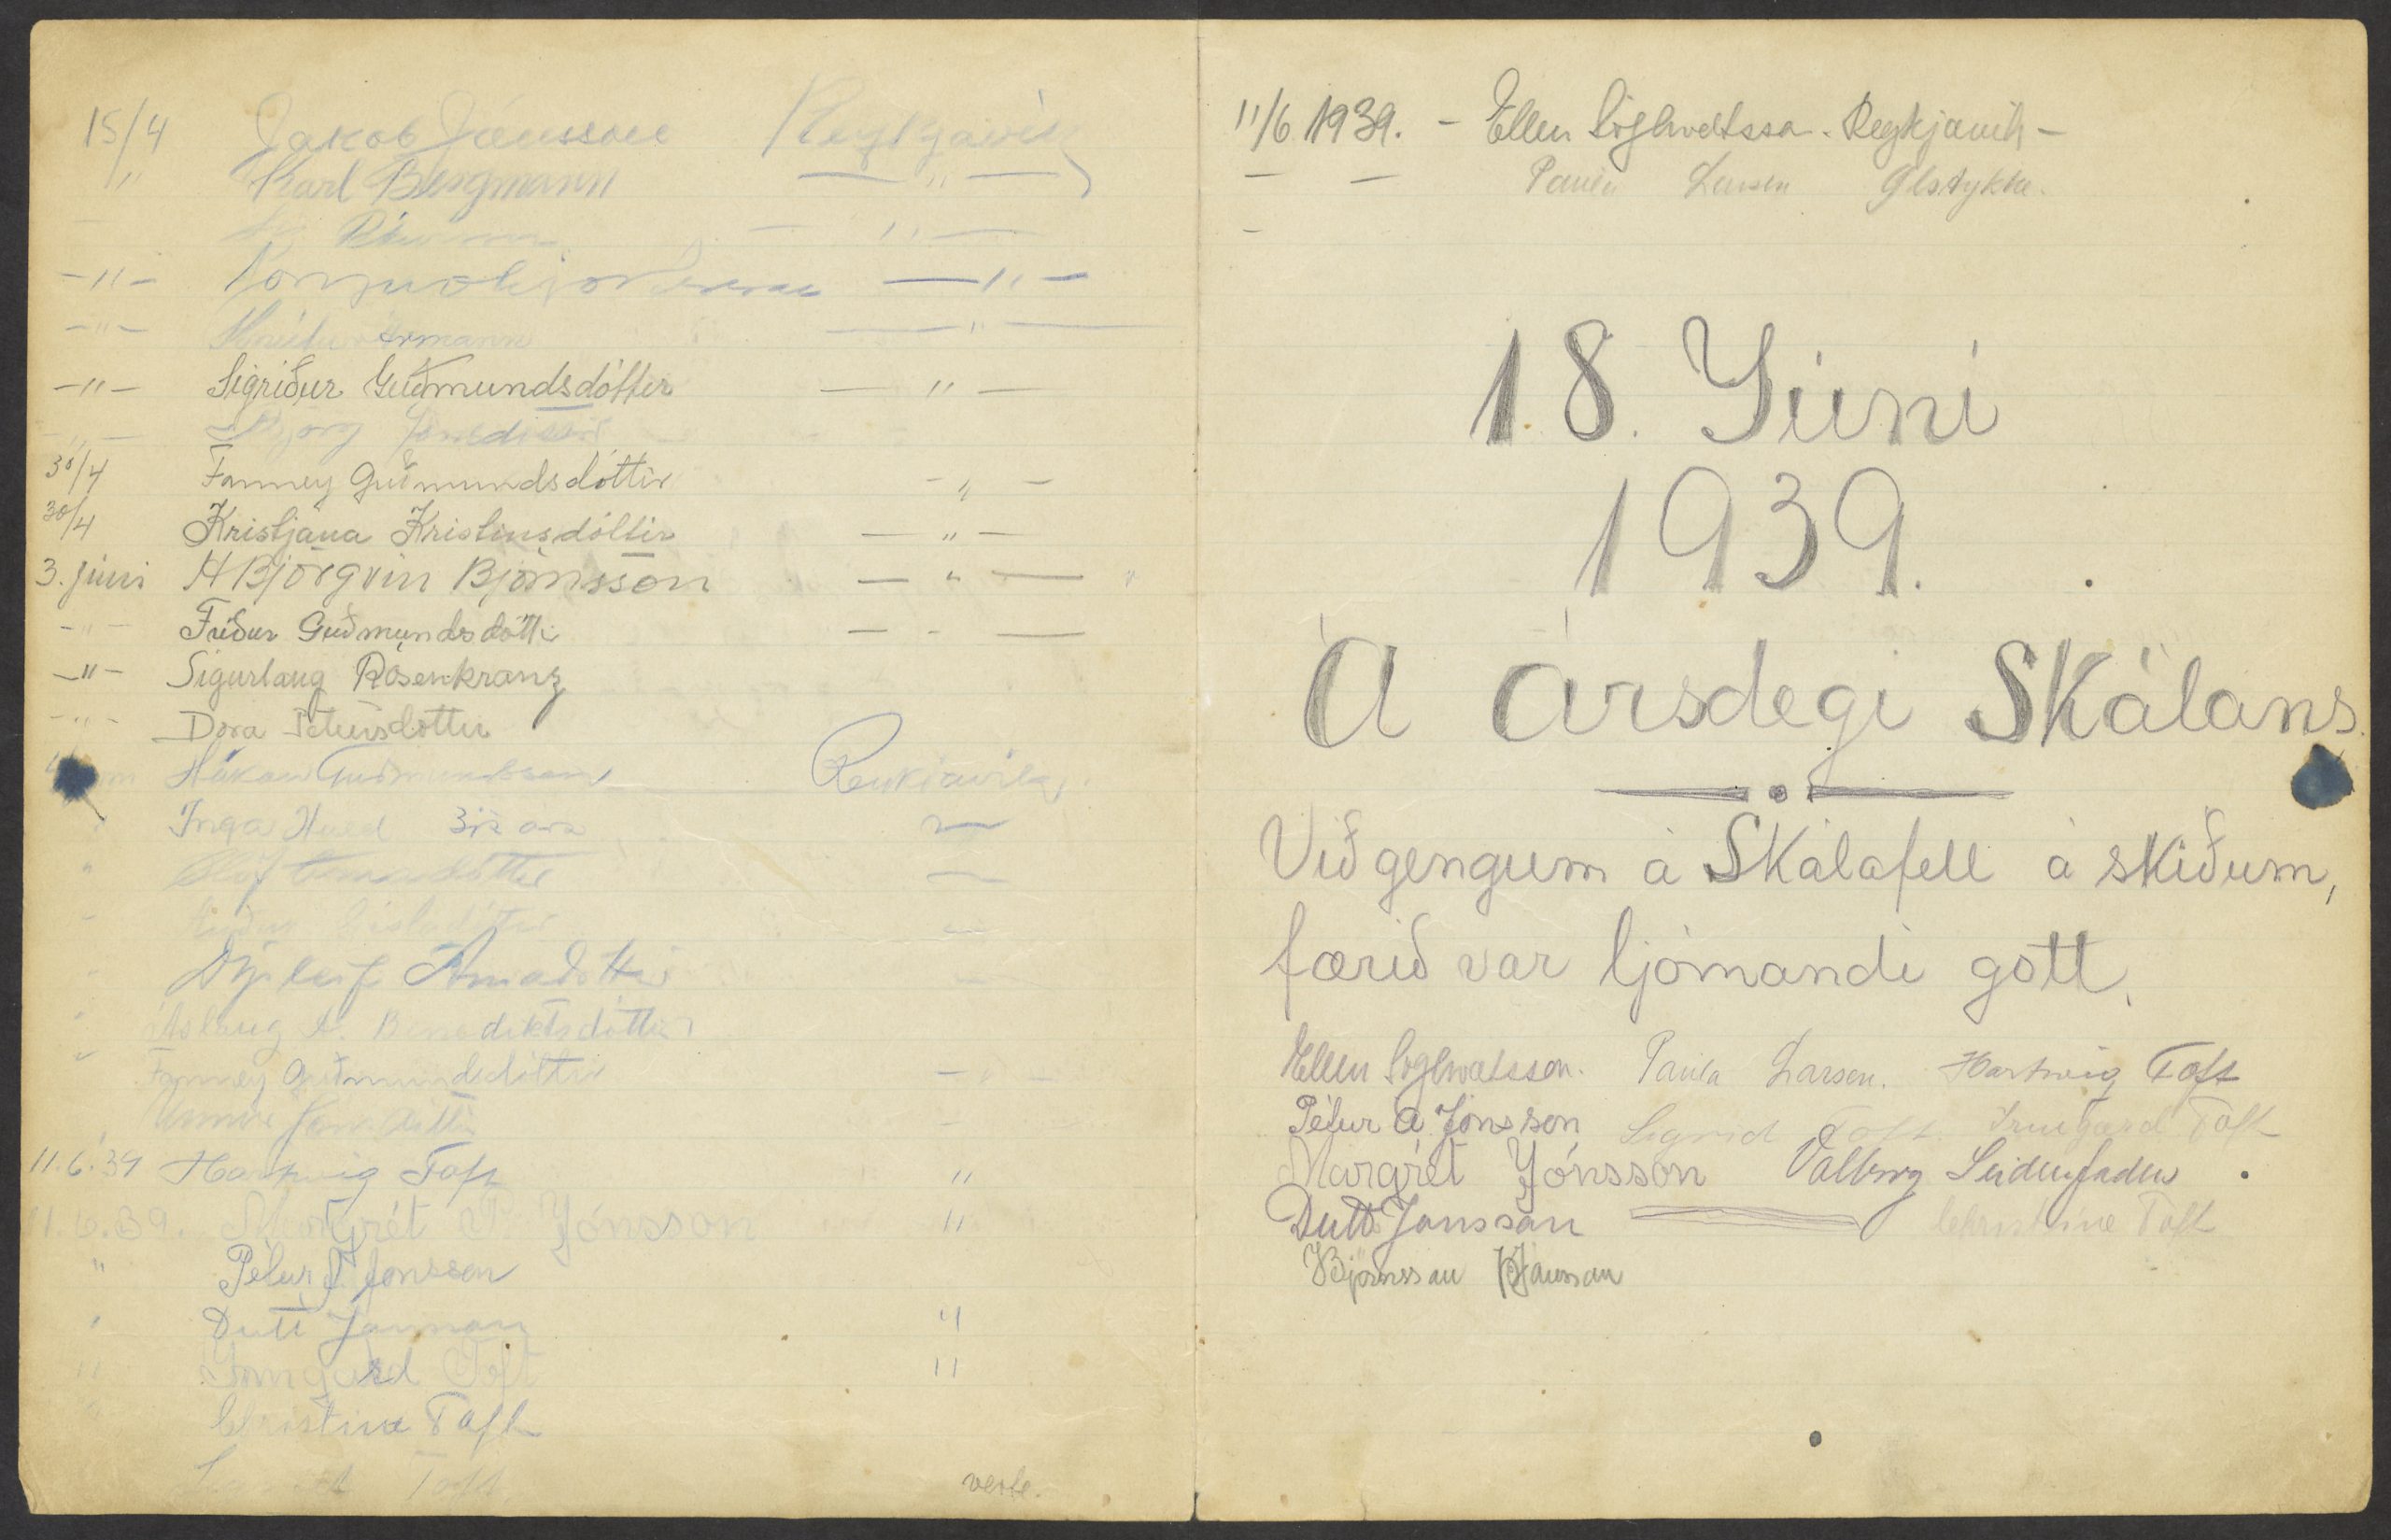 15/4 Jakob Jónsson Reykjavík
" Karl Bergmann — " —
— — " —
—"— — " —
—"— Ármann — " —
—"— Sigríður Guðmundsdóttir — " —
björg
30/4 Fanney Guðmundsdóttir - " -
30/4 Kristjana Kristinsdóttir — " —
3. júni H Björgvin Björnsson — " —
—"— Fríður Guðmundsdótti — - —
—"— Sigurlaug Rósenkranz
—"— Dora Pétursdottir
Hákon Guðmundsson Reykjavik
" Inga Huld 3½ ára —
" Ólöf —
" Gísladóttir —
" Dýrleif Árnadóttir —
" Áslaug A. Benediktsdóttir
" Fanney Guðmundsdóttir - " -
Unnur Jónsdóttir -
11.6.39 Hartwig Toft "
11.6.39. Margrét Þ Jónsson "
" Pétur Á. Jónsson
" Dutt Jónsson "
" Irmgard Toft "
" Christine Toft
Toft verte.
11/6 1939. - Ellen Sighvatsson. Reykjavik -
— — Paula Larsen
-
18. Júní
1939.
Á Ársdegi Skálans.
Við gengum á Skálafell á skíðum,
færið var ljómandi gott.
Ellen Sighvatsson. Paula Larsen. Hartwig Toft
Pétur Á Jónsson Sigrid Toft Irmgard Toft
Margrét Jónsson Valborg Seidenfaden
Dutt Jonsson Christine Toft